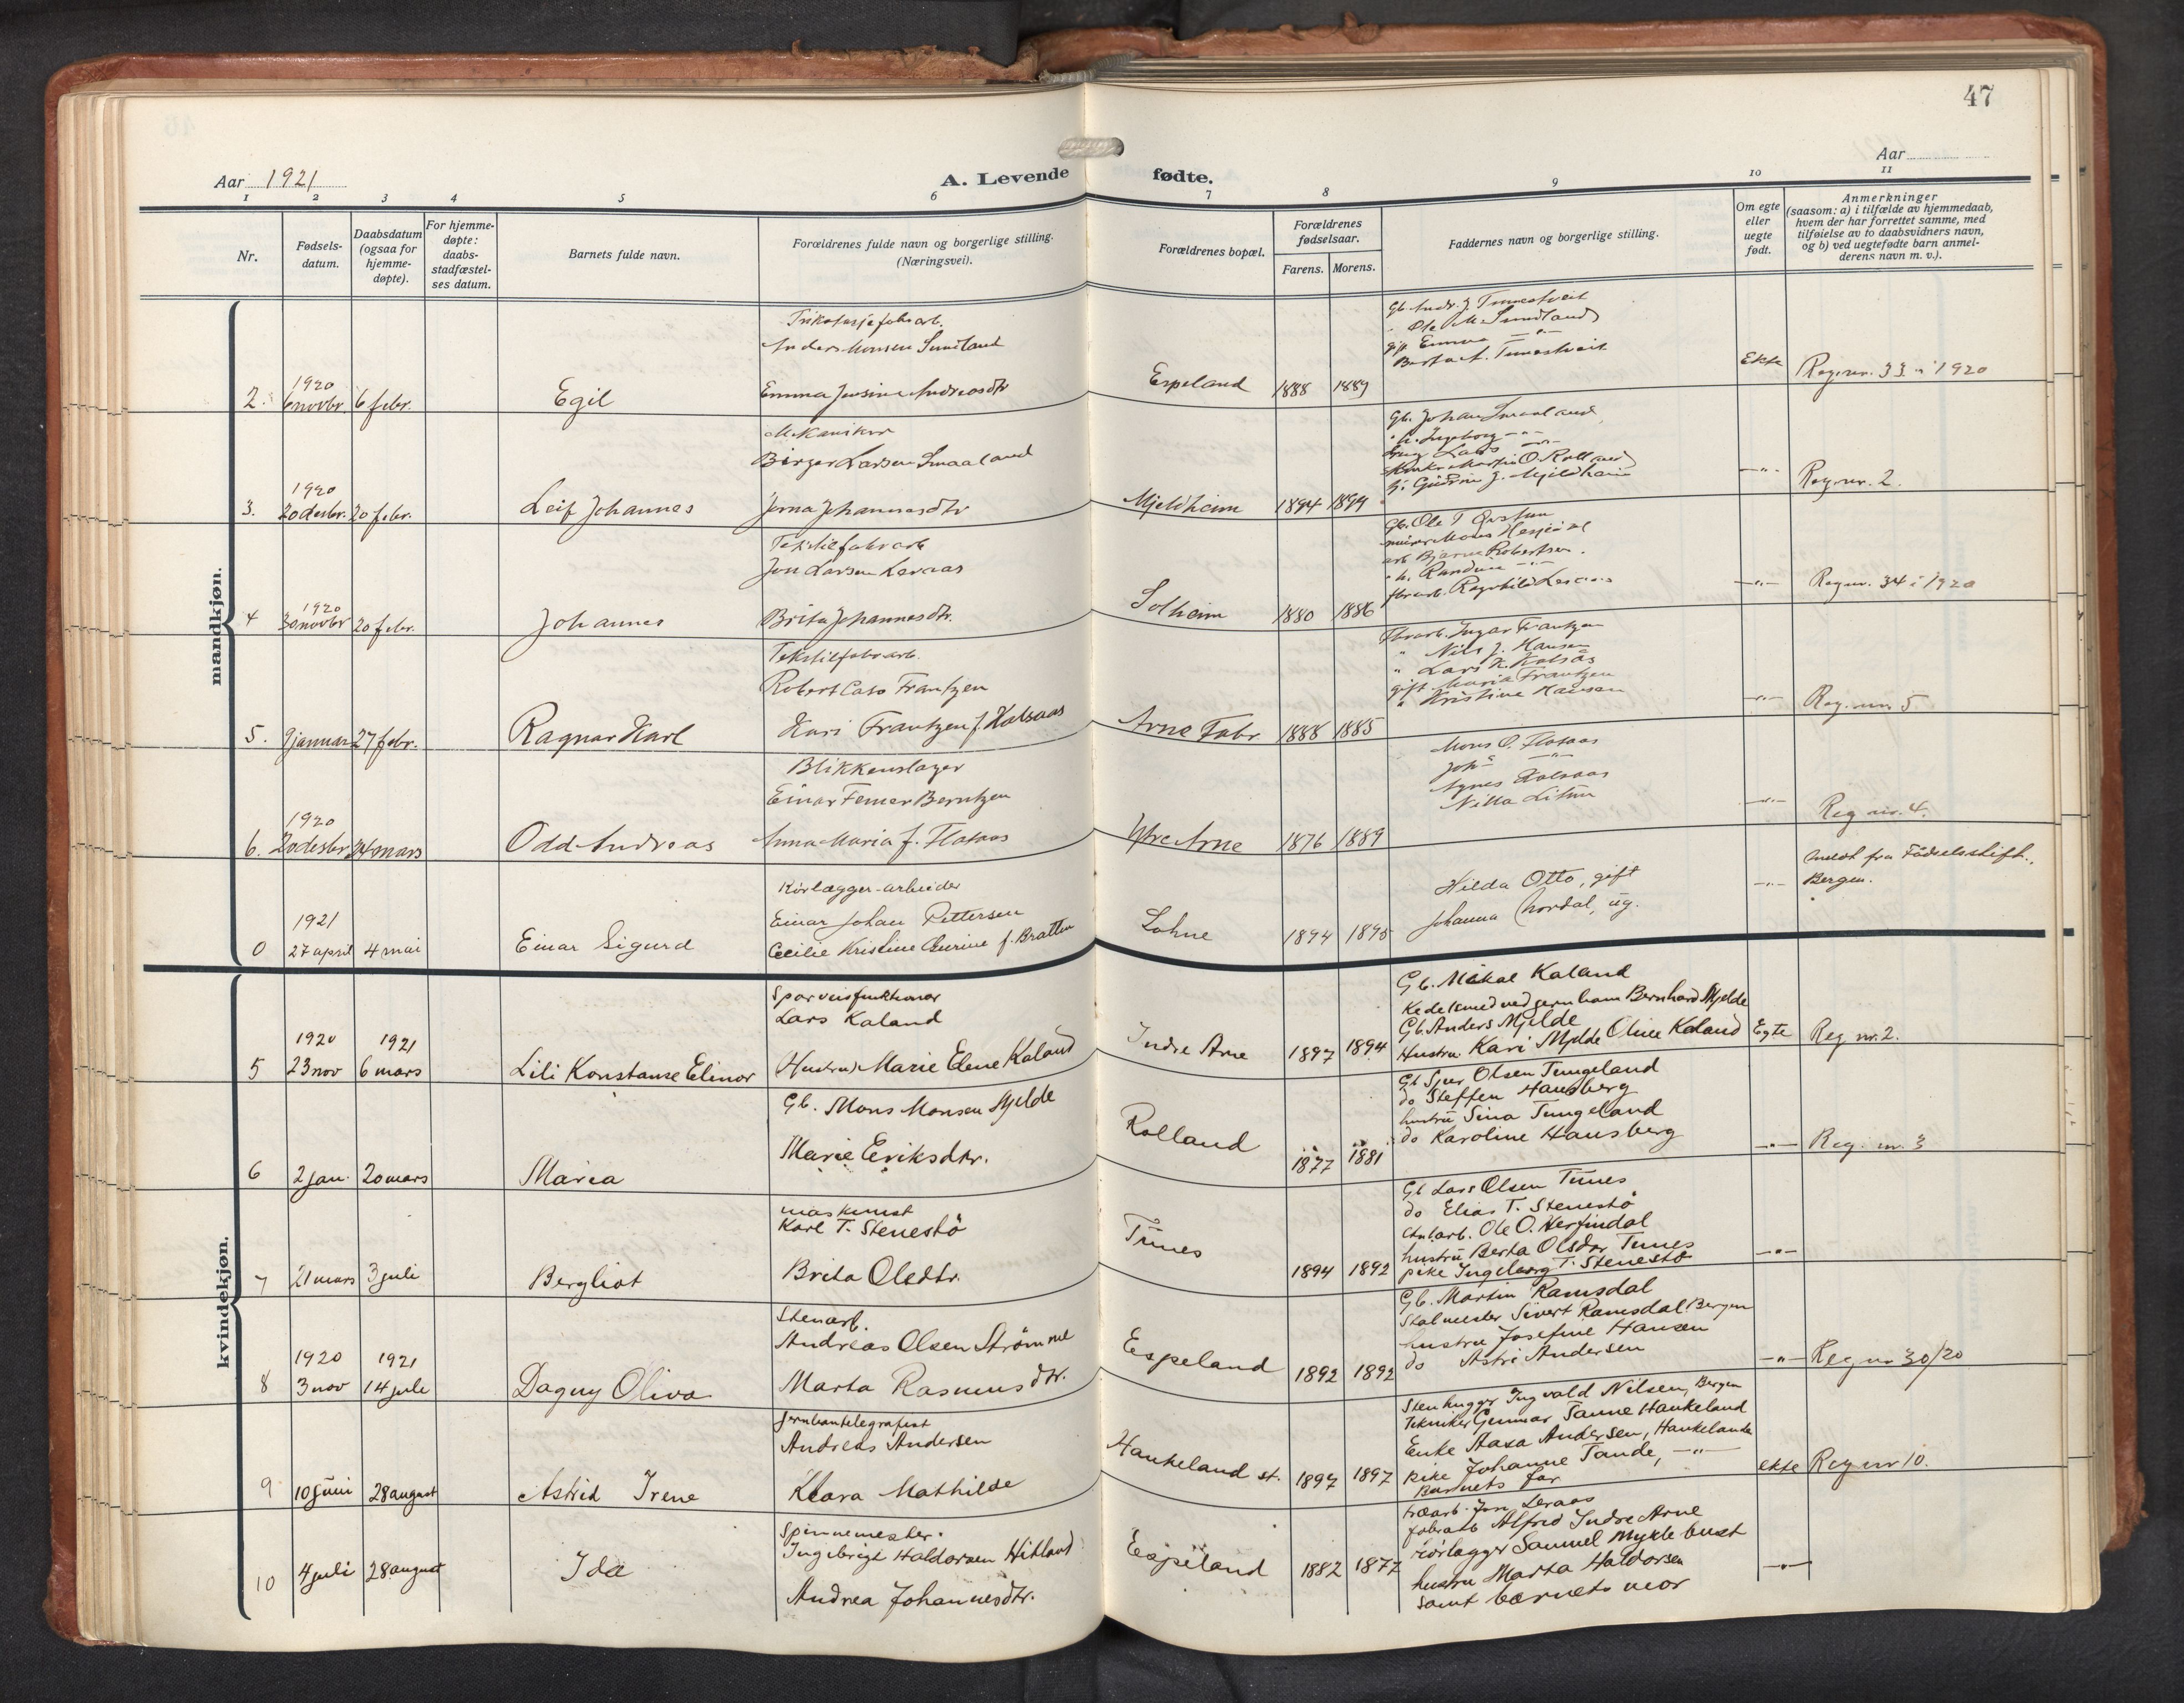 47
Aar 1921
A. Levende fødte.
Aar
1 2 3 4 5 6 7 8 9 10 11
Nr.
Fødsels-
datum.
Daabsdatum
(ogsaa for
hjemme-
døpte).
For hjemme-
døpte:
daabs-
stadfæstel-
ses datum.
Barnets fulde navn.
Forældrenes fulde navn og borgerlige stilling.
(Næringsvei).
Forældrenes bopæl.
Forældrenes
fødselsaar.
Farens. Morens.
Faddernes navn og borgerlige stilling.
Om egte
eller
uegte
født.
Anmerkninger
(saasom: a) i tilfælde av hjemmedaab,
hvem der har forrettet samme, med
tilføielse av to daabsvidners navn,
og b) ved uegtefødte barn anmel-
derens navn m. v.).
mandkjøn.
2. 1920
6 novbr. 6 febr.
Egil
Anders Monsen
Emma Andreasdtr
Espeland 1888 1889
Ekte
Reg. nr. 33 i 1920
3. 1920
20 desbr. 20 febr.
Leif Johannes
Mekaniker
Birger Larsen Smaaland
Jerna Johannesdtr
Mjeldheim 1894 1894
Gb. Johan Smaaland
" h. Ingeborg -"-
-"-
Reg. nr. 2.
4 1920
30 novbr 20 febr.
Johannes
Tekstilfabrarb
Jon Larsen Leraas
Brita Johannesdtr.
Solheim 1880 1886
arb Bjarne Robertsen.
fbrarb. Ragnhild Leraas
-"-
Reg nr. 34 i 1920
5. 9 januar 27 febr.
Ragnar Karl
Tekstilfabrarb.
Robert Frantzen
Kari Frantzen f. Kalsaas
Arne Fabr. 1888 1885
Fbrarb. Ingar Frantzen
" Nils J. Hansen
" Lars K. Kalsås
gift Maria Frantzen
" Kristine Hansen
-"-
Reg. nr. 5
6. 1920
20 desbr 24 mars
Odd Andreas
Blikkenslager
Einar Berntzen
Anna Maria f. Flataas
Ytre Arne 1876 1889
Mons O. Flataas
Joh. -"-
Agnes Kalsaas
-"-
Reg. nr. 4.
0 1921
27 april 4 mai
Einar Sigurd
Rörlægger-arbeider
Einar Johan Pettersen
Cecilie Kristine f. Bratten
Lohne 1894 1895
Hilda Otto, gift
Johanna Nordal, ug.
-"-
Meldt fra Födselsstift.
Bergen.
kvindekjøn.
5 1920 1921
23 nov 6 mars
Lili Konstanse Elinor
Sporveisfunktionær
Lars Kaland
Hustru Marie Elene Kaland
Indre Arne 1897 1894
Gb. Mikal Kaland
Kedelsmed ved jernban Bernhard Mjelde
Gb. Anders Mjelde
Hustru Kari Mjelde Oline Kaland
Egte
Reg nr. 2.
6 2 jan. 20 mars
Maria
Gb. Mons Monsen Mjelde
Marie Eriksdtr.
Rolland 1877 1881
Gb Sjur Olsen Tungeland
do Steffen Hausberg
hustru Sina Tungeland
do Karoline Hausberg
-"-
Reg. nr. 3
7 21 mars 3 juli
Bergliot
maskinist
Karl T. Stenestö
Brita Olsdtr.
Tunes 1894 1892
Gb Lars Olsen Tunes
do Elias T. Stenestö
Ole O. Herfindal
hustru Berta Olsdtr Tunes
pike Ingeborg T. Stenestö
-"-
8 1920 1921
3 nov 14 juli
Dagny Oliva
Stenarb.
Andreas Olsen Strömme
Marta Rasmusdtr.
Espeland 1892 1892
Gb. Martin Ramsdal
Stalmester Sivert Ramsdal Bergen
hustru Josefine Hansen
do Astri Andersen
-"-
Reg nr 30/20
9 10 juni 28 august
Astrid Irene
Jernbantelegrafist
Andreas Andersen
Klara Mathilde
Haukeland st. 1897 1897
Stenhugger Ingvald Nilsen, Bergen
Tekniker Gunnar Tanne Haukeland
Enke Aasa Andersen, Haukeland
pike Johanne Tande, -"-
Barnets far
ekte
Reg nr 10.
10 4 juli 28 august
Ida
Spinnemester.
Ingebrigt Haldorsen Hitland
Andrea Johannesdtr.
Espeland 1882 1877
Jon Leraas
fabrarb Alfred Indre Arne
rörlægger Samuel Myklebust
hustru Marta Haldorsen
samt barnets mor
-"-